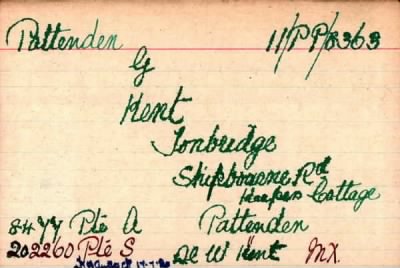 Pattenden 11/PP/8363
G
Kent
Tonbridge
Shipbourne Rd
Keepers Cottage
8477 Pte A Pattenden
202260 Pte S W Kent MX.